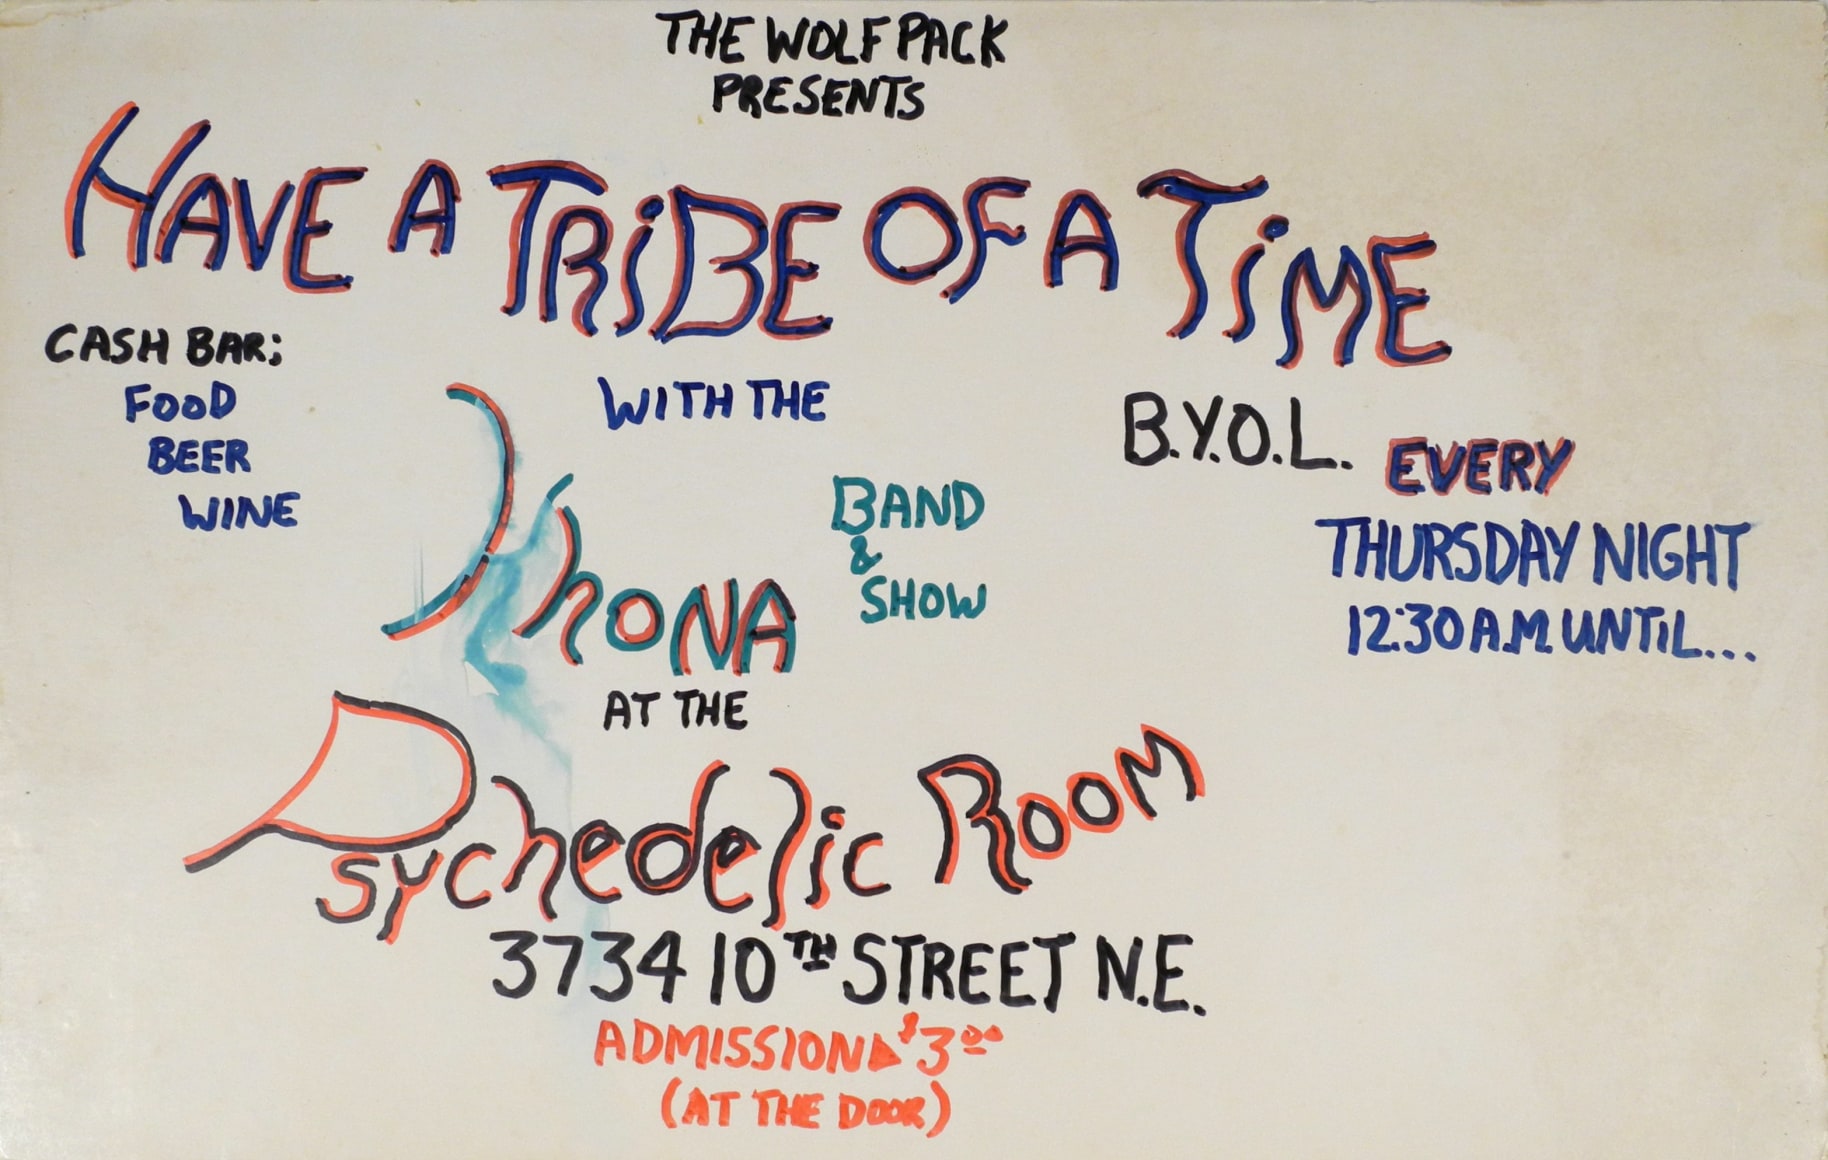 THE WOLF PACK
PRESENTS
HAVE A TRiBE OF A TiME
CASH BAR;
FOOD
BEER
WINE
WITH THE
BAND
&
SHOW
AT THE
Psychedelic Room
B.Y.O.L.
EVERY
THURSDAY NIGHT
12:30 A.M. UNTiL...
3734 10TH STREET N.E.
ADMISSION $3.00
(AT THE DOOR)